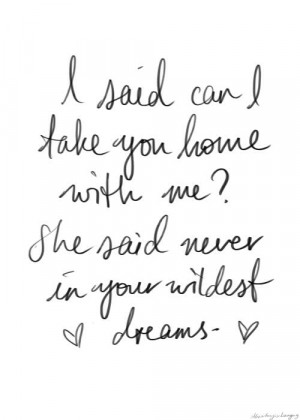 I said can I
take you home
with me?
She said never
in your wildest
♡ dreams- ♡